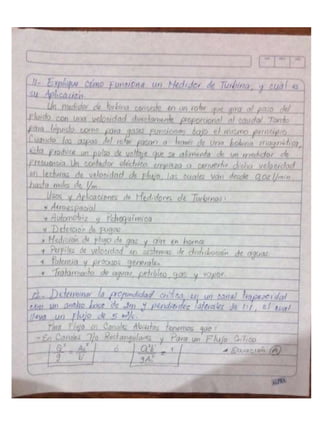 11.- Explique cómo funciona un Medidor de Turbina, y cual es
su Aplicación.
Un medidor de turbina consiste en un rotor que gira al paso del
fluido con una velocidad directamente proporcional al caudal. Tanto
para líquido como para gases funcionan bajo el mismo principio.
Cuando las aspas del rotor pasan a través de una bobina magnética,
esta produce un pulso de voltaje que se alimenta de un medidor de
frecuencia. Un contador eléctrico empieza a convertir dicha velocidad
en lecturas de velocidad de flujo, las cuales van desde 0,02 l/min
hasta miles de l/m.
Usos y Aplicaciones de Medidores de Turbinas:
* Aeroespacial
* Automotriz y Petroquímica
* Detección de fugas
* Medición de flujo de gas y aire en hornos
* Perfiles de velocidad en sistemas de distribución de aguas
* Potencia y procesos generales
* Tratamiento de aguas, petróleo, gas y vapor.
12.- Determinar la profundidad crítica, en un canal trapezoidal
con un ancho base de 2m y pendientes laterales de 1:1, el cual
lleva un flujo de 5 m³/s.
Para Flujo en Canales Abiertos tenemos que:
- En Canales No Rectangulares y Para un Flujo Crítico